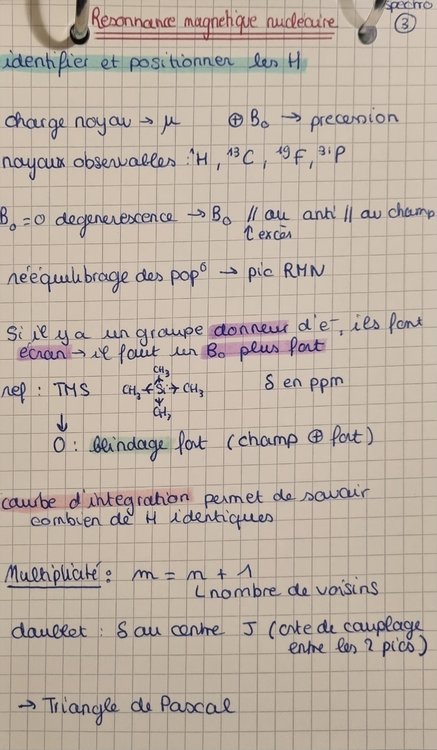 spectro
③
Resonnance magnetique nucléaire
identifier et positionner les H
charge noyau → μ ⊕ B₀ → precession
noyaux observables : ¹H, ¹³C, ¹⁹F, ³¹P
B₀ = 0 degenerescence → B₀ // au anti // au champ
↑ excès
rééquilibrage des pop° → pic RMN
Si il y a un groupe donneur d'e⁻, ils font
écran → il faut un B₀ plus fort
CH₃
ref : TMS CH₃ ← Si → CH₃ δ en ppm
CH₃
↓
0 : blindage fort (champ ⊕ fort)
courbe d'integration permet de savoir
combien de H identiques
Multiplicité : m = n + 1
nombre de voisins
doublet : δ au centre J (cste de couplage
entre les 2 pics)
→ Triangle de Pascal